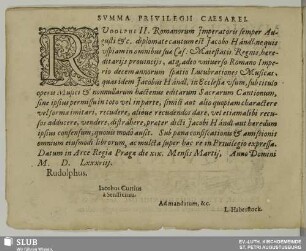 SVMMA PRIVILEGII CAESAREI.
RVDOLPHVS II. Romanorum Imperatoris semper Au-
gusti &c. diplomate cautum est Jacobo Händl, ne quis
uspiam in omnibus suæ Cæs. Maiestatis Regnis, hære-
ditarijs prouincijs, atq; adeo vniuerso Romano Impe-
rio decem annorum spatio lucubrationes Musicas,
quas idem Jacobus Händl, in Ecclesiæ vsum, sub titulo
operis Musici & nonnullarum hactenus editarum Sacrarum Cantionum,
siue ipsius permissu in toto vel in parte, simili aut alio quopiam charactere
vel forma imitari, recudere, alijsue recudendas dare, vel etiam alibi recu-
sas adducere, vendere, distrahere, præter dicti Jacobi Händl aut hæredum
ipsius consensum, quouis modo ausit. Sub pœna confiscationis & amissionis
omnium eiusmodi librorum, ac mulcta super hac re in Priuilegio expressa.
Datum in Arce Regia Pragæ die XIX. Mensis Martij, Anno Domini
M. D. LXXXVII.
Rudolphus.
Iacobus Curtius
à Senfftenau.
Ad mandatum, &c.
I. Haberstock.
SLUB
Wir führen Wissen.
EV.-LUTH. KIRCHGEMEINDE
ST. PETRI AUGUSTUSBURG